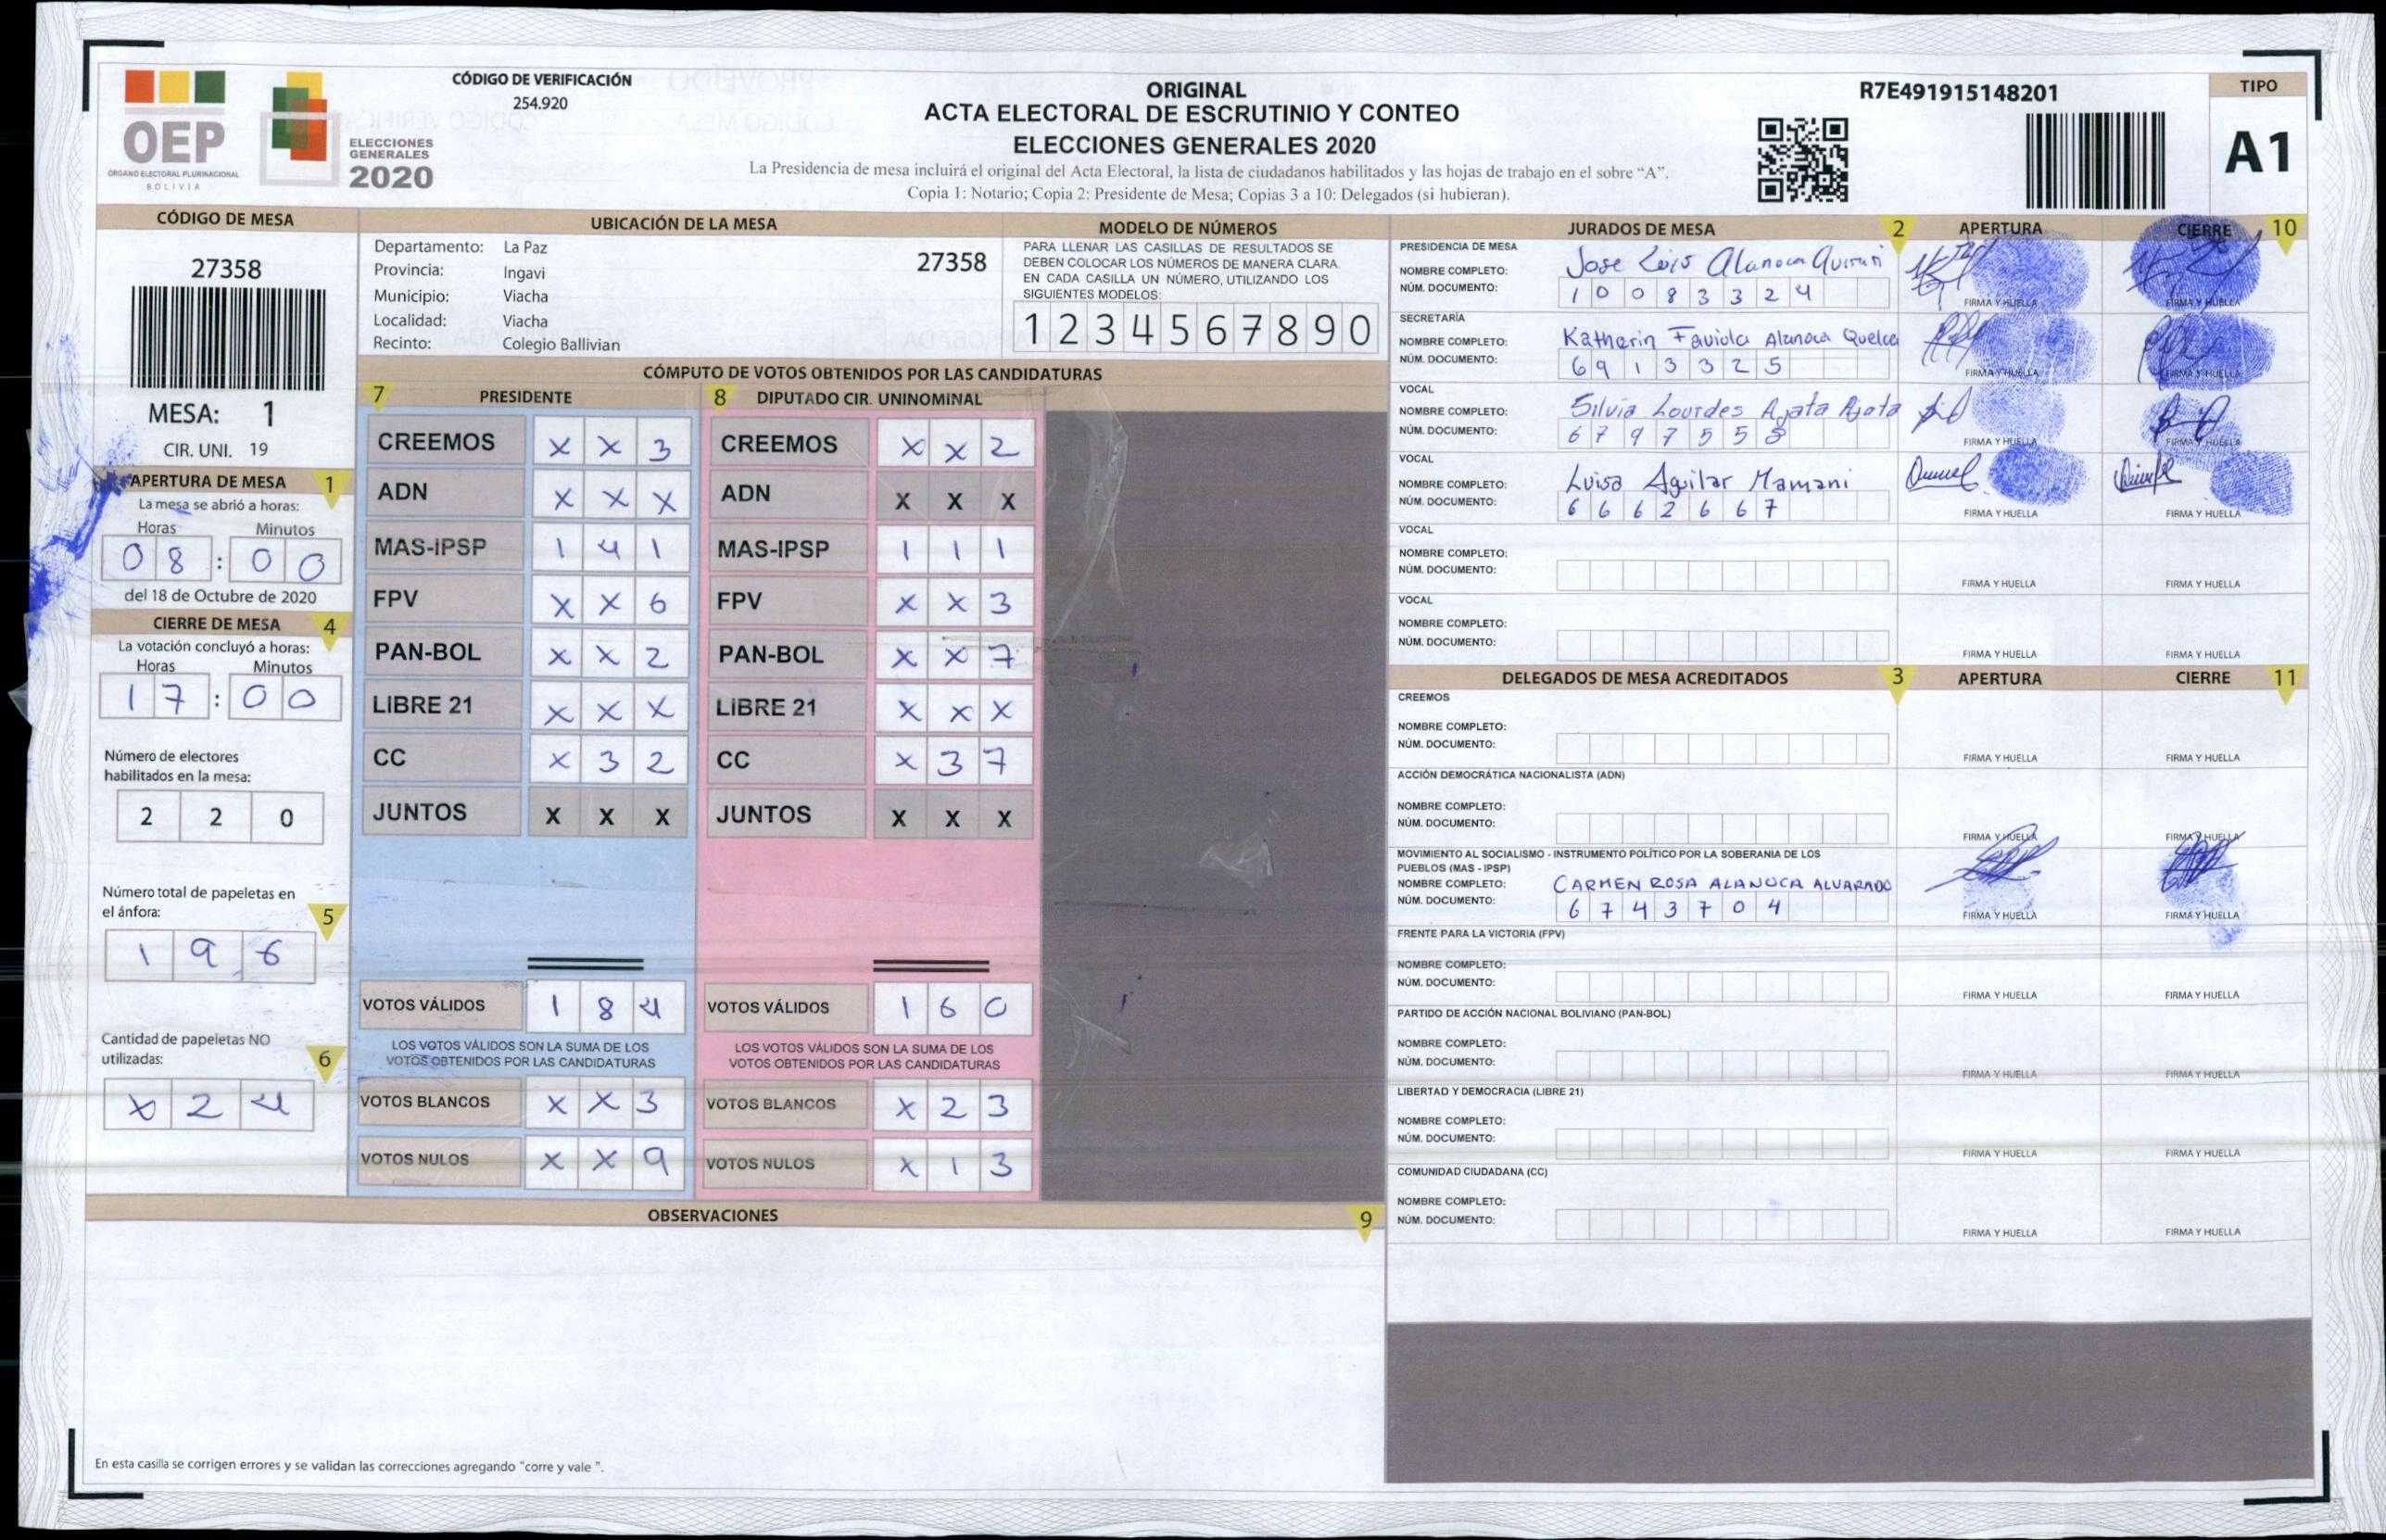 OEP
ÓRGANO ELECTORAL PLURINACIONAL
BOLIVIA
ELECCIONES
GENERALES
2020
CÓDIGO DE VERIFICACIÓN
254.920
ORIGINAL
ACTA ELECTORAL DE ESCRUTINIO Y CONTEO
ELECCIONES GENERALES 2020
La Presidencia de mesa incluirá el original del Acta Electoral, la lista de ciudadanos habilitados y las hojas de trabajo en el sobre “A”.
Copia 1: Notario; Copia 2: Presidente de Mesa; Copias 3 a 10: Delegados (si hubieran).
R7E491915148201
TIPO
A1
CÓDIGO DE MESA
27358
MESA: 1
CIR. UNI. 19
APERTURA DE MESA 1
La mesa se abrió a horas:
Horas Minutos
0 8 : 0 0
del 18 de Octubre de 2020
CIERRE DE MESA 4
La votación concluyó a horas:
Horas Minutos
1 7 : 0 0
Número de electores
habilitados en la mesa:
2 2 0
Número total de papeletas en
el ánfora: 5
1 9 6
Cantidad de papeletas NO
utilizadas: 6
X 2 4
UBICACIÓN DE LA MESA
Departamento: La Paz 27358
Provincia: Ingavi
Municipio: Viacha
Localidad: Viacha
Recinto: Colegio Ballivian
MODELO DE NÚMEROS
PARA LLENAR LAS CASILLAS DE RESULTADOS SE
DEBEN COLOCAR LOS NÚMEROS DE MANERA CLARA.
EN CADA CASILLA UN NÚMERO, UTILIZANDO LOS
SIGUIENTES MODELOS:
1 2 3 4 5 6 7 8 9 0
CÓMPUTO DE VOTOS OBTENIDOS POR LAS CANDIDATURAS
7 PRESIDENTE
CREEMOS X X 3
ADN X X X
MAS-IPSP 1 4 1
FPV X X 6
PAN-BOL X X 2
LIBRE 21 X X X
CC X 3 2
JUNTOS X X X
VOTOS VÁLIDOS 1 8 4
LOS VOTOS VÁLIDOS SON LA SUMA DE LOS
VOTOS OBTENIDOS POR LAS CANDIDATURAS
VOTOS BLANCOS X X 3
VOTOS NULOS X X 9
8 DIPUTADO CIR. UNINOMINAL
CREEMOS X X 2
ADN X X X
MAS-IPSP 1 1 1
FPV X X 3
PAN-BOL X X 7
LIBRE 21 X X X
CC X 3 7
JUNTOS X X X
VOTOS VÁLIDOS 1 6 0
LOS VOTOS VÁLIDOS SON LA SUMA DE LOS
VOTOS OBTENIDOS POR LAS CANDIDATURAS
VOTOS BLANCOS X 2 3
VOTOS NULOS X 1 3
OBSERVACIONES 9
En esta casilla se corrigen errores y se validan las correcciones agregando "corre y vale ".
JURADOS DE MESA 2 APERTURA CIERRE 10
PRESIDENCIA DE MESA
NOMBRE COMPLETO: Jose Luis Alanoca
NÚM. DOCUMENTO: 1 0 0 8 3 3 2 4
FIRMA Y HUELLA FIRMA Y HUELLA
SECRETARÍA
NOMBRE COMPLETO: Katherin Faviola Alanoca Quelca
NÚM. DOCUMENTO: 6 9 1 3 3 2 5
FIRMA Y HUELLA FIRMA Y HUELLA
VOCAL
NOMBRE COMPLETO: Silvia Lourdes Ajata Ajata
NÚM. DOCUMENTO: 6 7 9 7 5 5 8
FIRMA Y HUELLA FIRMA Y HUELLA
VOCAL
NOMBRE COMPLETO: Luisa Aguilar Mamani
NÚM. DOCUMENTO: 6 6 6 2 6 6 7
FIRMA Y HUELLA FIRMA Y HUELLA
VOCAL
NOMBRE COMPLETO:
NÚM. DOCUMENTO:
FIRMA Y HUELLA FIRMA Y HUELLA
VOCAL
NOMBRE COMPLETO:
NÚM. DOCUMENTO:
FIRMA Y HUELLA FIRMA Y HUELLA
DELEGADOS DE MESA ACREDITADOS 3 APERTURA CIERRE 11
CREEMOS
NOMBRE COMPLETO:
NÚM. DOCUMENTO:
FIRMA Y HUELLA FIRMA Y HUELLA
ACCIÓN DEMOCRÁTICA NACIONALISTA (ADN)
NOMBRE COMPLETO:
NÚM. DOCUMENTO:
FIRMA Y HUELLA FIRMA Y HUELLA
MOVIMIENTO AL SOCIALISMO - INSTRUMENTO POLÍTICO POR LA SOBERANIA DE LOS
PUEBLOS (MAS - IPSP)
NOMBRE COMPLETO: CARMEN ROSA ALANOCA ALVARADO
NÚM. DOCUMENTO: 6 7 4 3 7 0 4
FIRMA Y HUELLA FIRMA Y HUELLA
FRENTE PARA LA VICTORIA (FPV)
NOMBRE COMPLETO:
NÚM. DOCUMENTO:
FIRMA Y HUELLA FIRMA Y HUELLA
PARTIDO DE ACCIÓN NACIONAL BOLIVIANO (PAN-BOL)
NOMBRE COMPLETO:
NÚM. DOCUMENTO:
FIRMA Y HUELLA FIRMA Y HUELLA
LIBERTAD Y DEMOCRACIA (LIBRE 21)
NOMBRE COMPLETO:
NÚM. DOCUMENTO:
FIRMA Y HUELLA FIRMA Y HUELLA
COMUNIDAD CIUDADANA (CC)
NOMBRE COMPLETO:
NÚM. DOCUMENTO:
FIRMA Y HUELLA FIRMA Y HUELLA